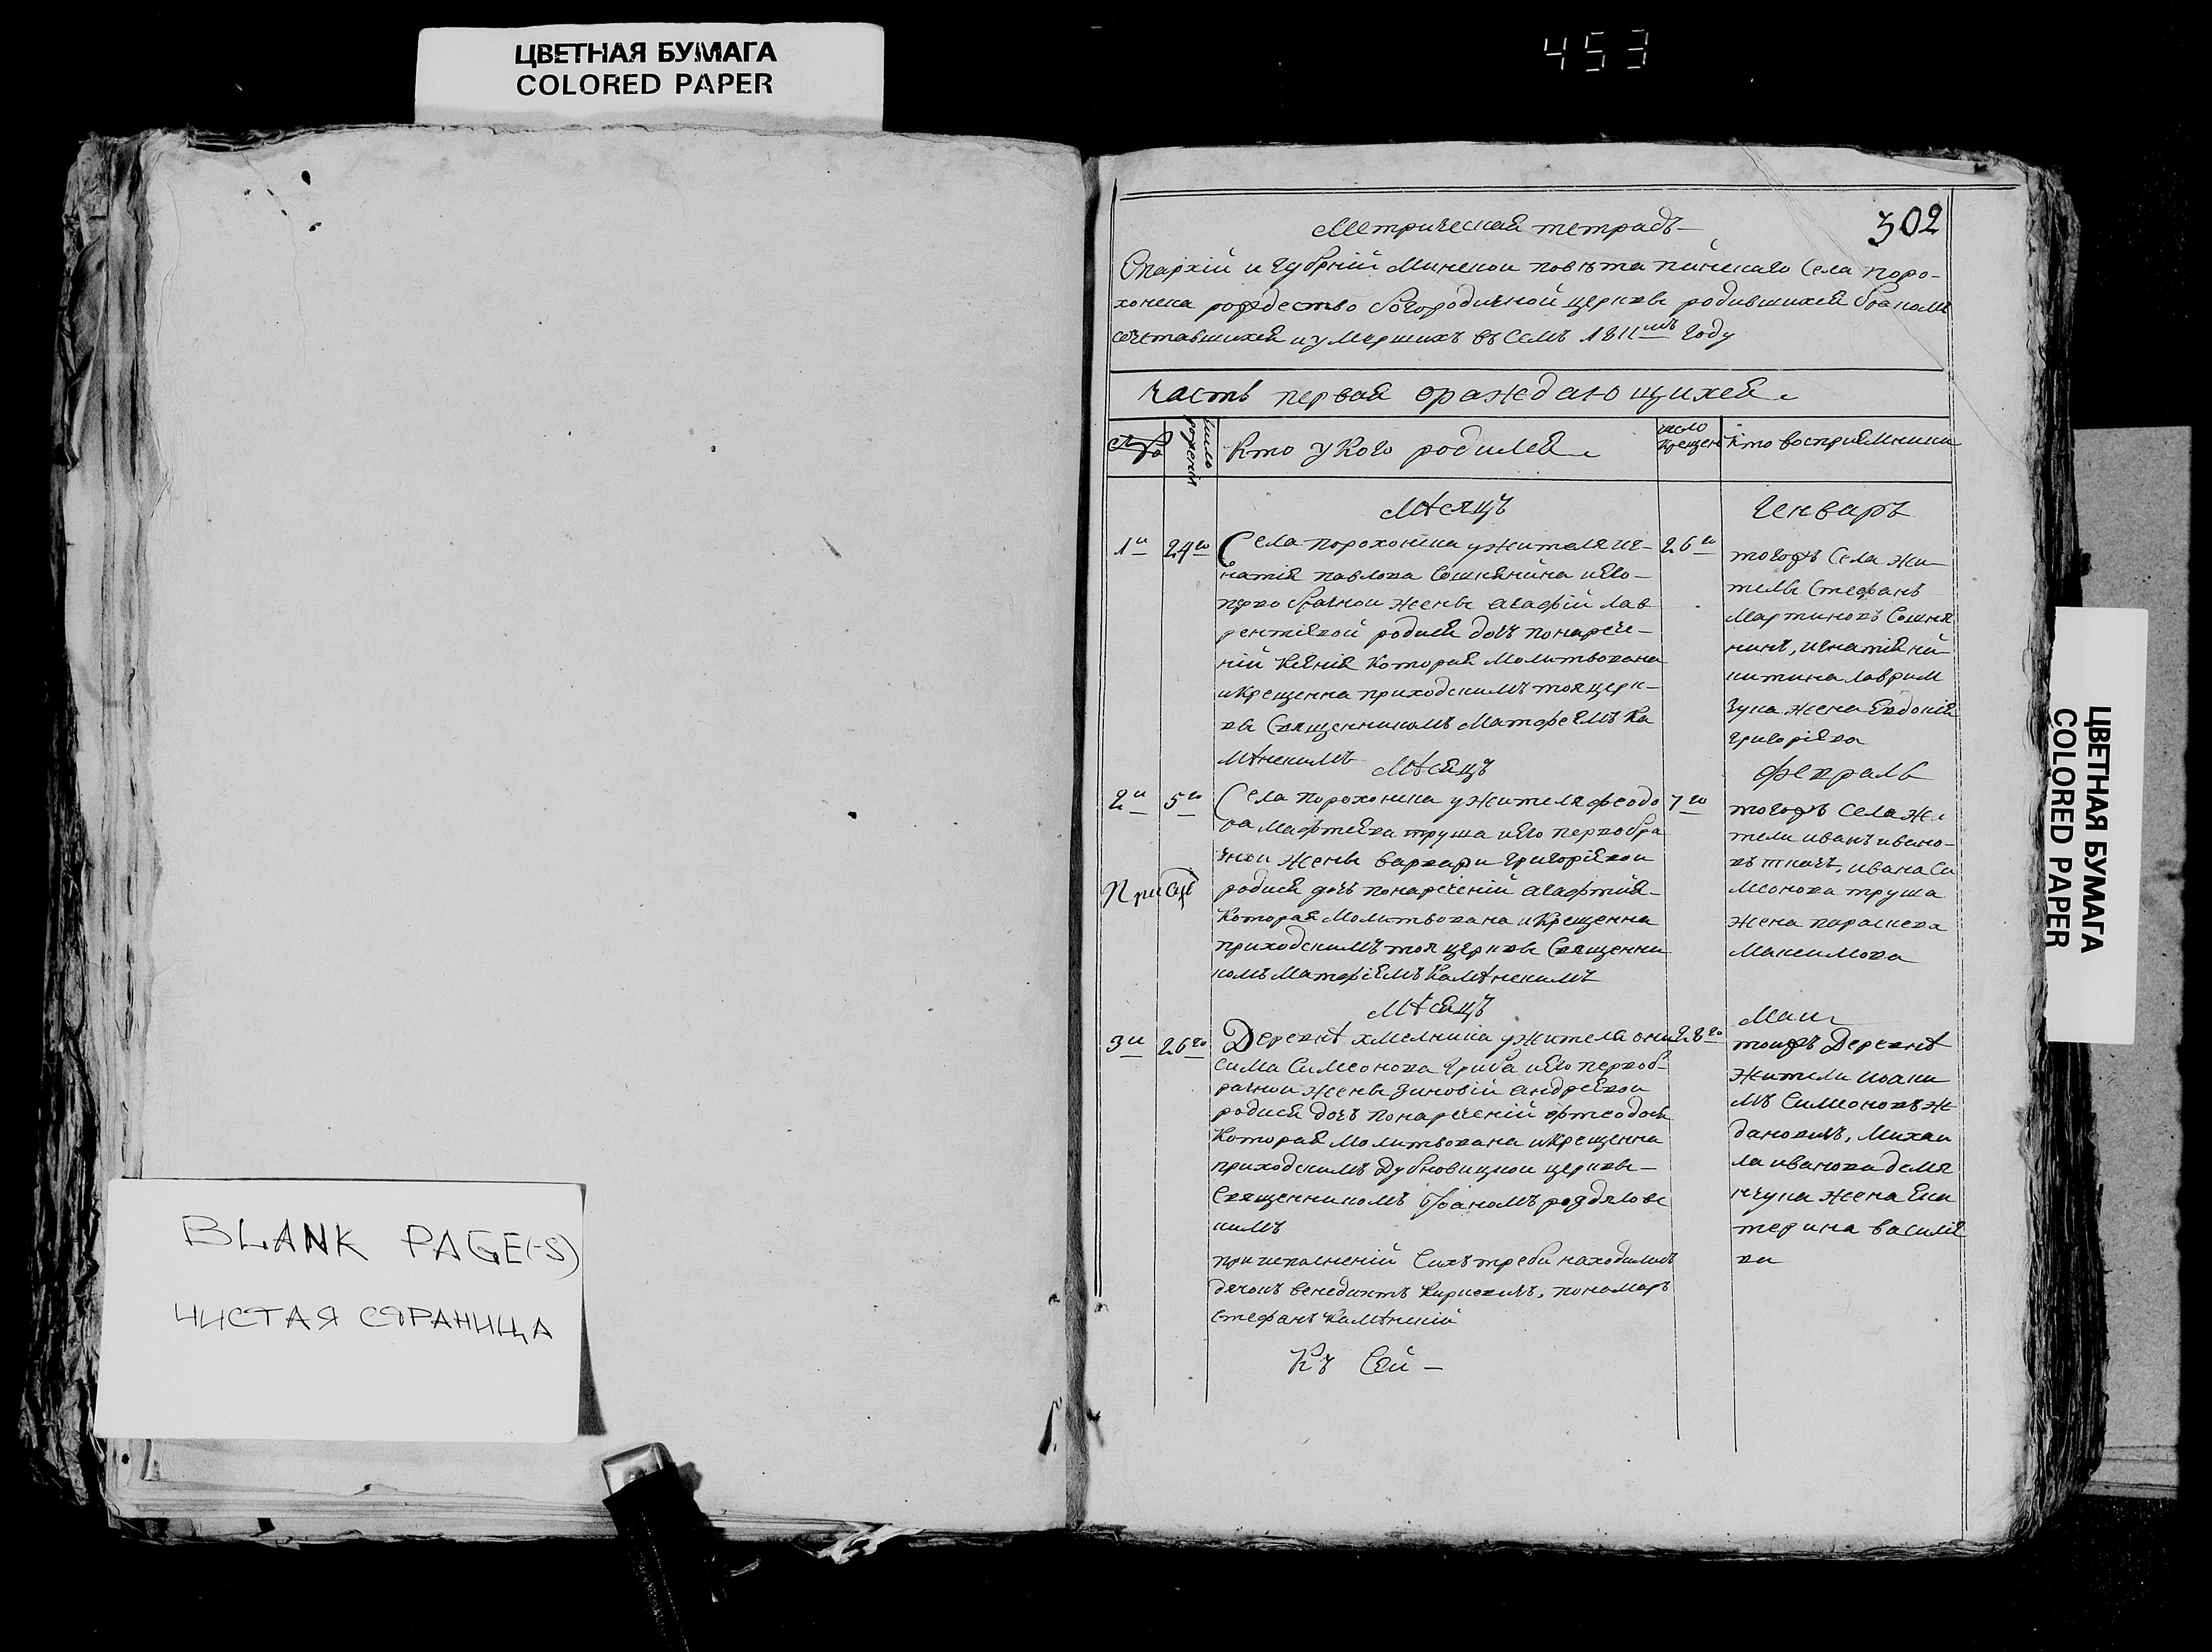 ЦВЕТНАЯ БУМАГА
COLORED PAPER
453
BLANK PAGE(-S)
ЧИСТАЯ СТРАНИЦА
302
Метрическая тетрадь
Епархіи и Губрніи Минской повѣта пинскаго Села поро-
хонска рождество богородичной церкви родившихся браком
сочетавшихся и умершихъ въ семъ 1811мъ Году
Часть первая ораждающихся
№ число рожденія Кто у Кого родился число Крещен Кто восприемники
Мѣсяцъ Генварь
1й 24го Села порохонска ужителя иг-
натія павлова Сошнянина иего
перво брачной жены агафіи лав
рентіевой родися дочь понарече-
ніи Ксенія Которая Молитвована
иКрещенна приходскимъ тоя церк-
ви Священникомъ Матфеемъ Ка
мѣнскимъ
26го
тогожъ Села жи-
тель Стефанъ
Мартиновъ Сошня
нинъ, игнатія ни-
китина лаврим
чука жена Евдокія
григоріева
Мѣсяцъ февраль
2й 5го Села порохонска ужителя феодо
ра Мафтеева труша иего первобра
чной жены варвари григоріевой
родися дочь понареченіи агафтия
Которая Молитвована иКрещенна
приходскимъ тоя церкви Священни
комъ Матфіемъ Камѣнскимъ
7го
тогожъ Села жи
тели иванъ ивано-
въ ткачъ, ивана Си
меонова труша
жена параскева
Максимова
Мѣсяцъ Маи
3й 26го Деревнѣ хмелника ужителя они
сима Симеонова Гриба иего первоб
рачной жены Зиновіи андреевой
родися дочь понареченіи фтеодося
Которая Молитвована иКрещенна
приходскимъ Дубновицкои церкви
Священникомъ
кимъ
28го
тоижъ Деревнѣ
жители иоаки
мъ Симеоновъ ж
дановичъ, Михаи
ла иванова демя
нчука жена Ека
терина василіе
ва
при исполненіи Сихъ требъ находились
дячокъ венедиктъ пономаръ
Стефанъ Камѣнскій
Къ Сей
ЦВЕТНАЯ БУМАГА
COLORED PAPER